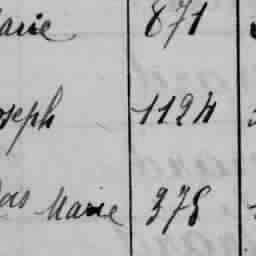 arie 871
oseph 1124
Marie 378